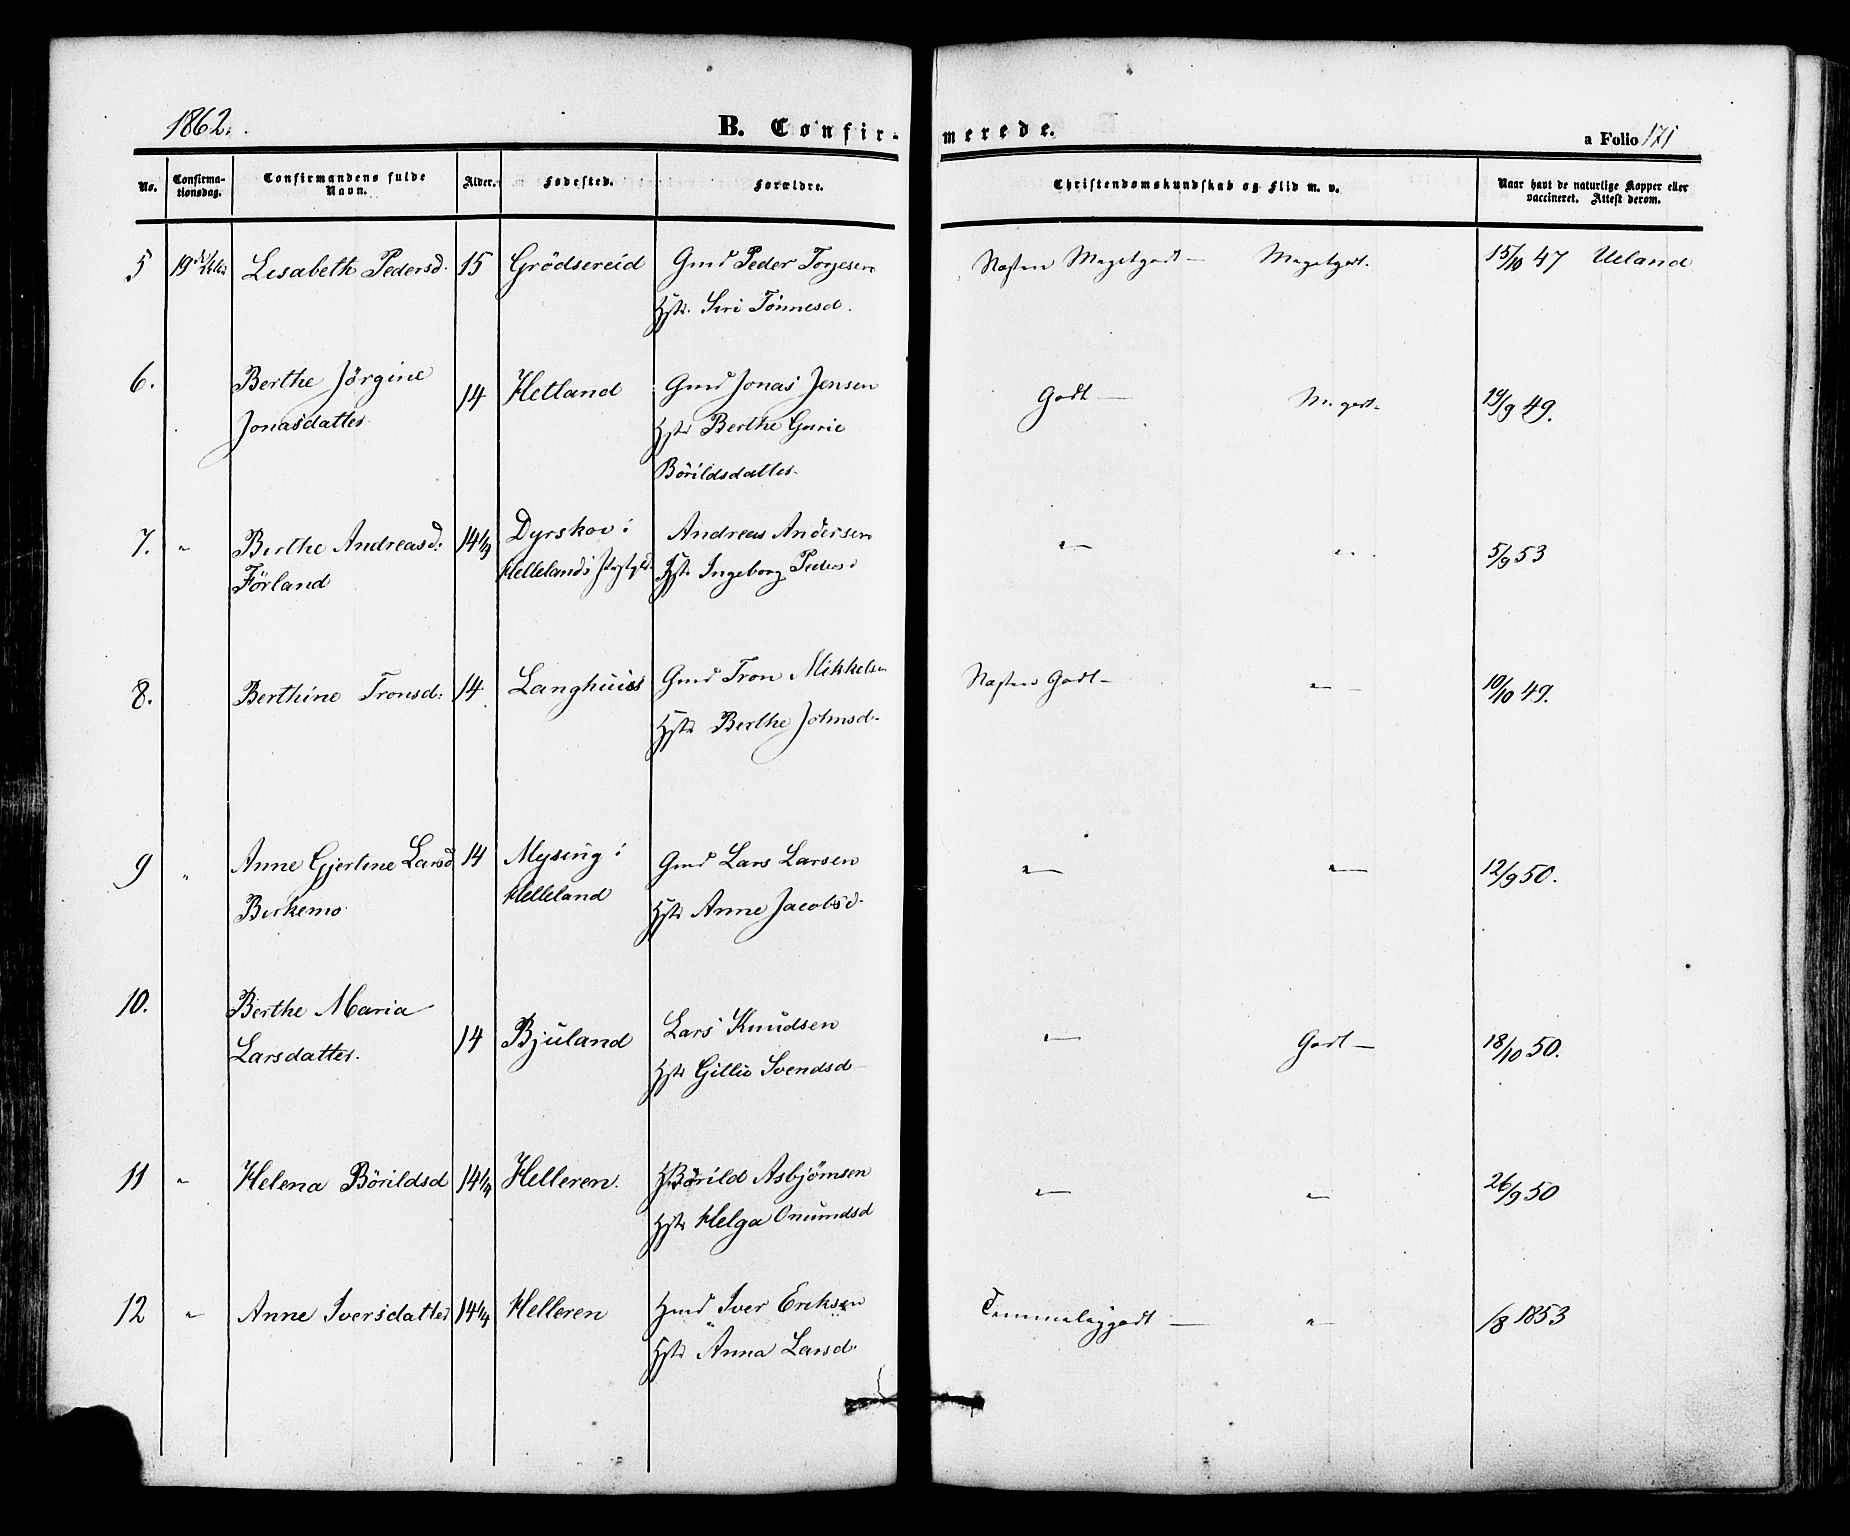 1862.
B. Confirmerede.
a Folio 171
No.
Confirma-
tionsdag.
Confirmandens fulde
Navn.
Alder.
Fødested.
Forældre.
Christendomskundskab og Flid m. v.
Naar havt de naturlige Kopper eller
vaccineret. Attest derom.
5 19de Lisabeth Pedersd. 15 Grödsereid Gmd Peder Torjesen Næsten Megetgodt — Megetgodt. 15/10 47 Ueland
Hstr. Siri Tönnesd.
6. Berthe Jörgine 14 Hetland Gmd Jonas Jensen Godt — M. godt. 19/9 49.
Jonasdatter Hstr Berthe Gurie
Börildsdatter
7. " Berthe Andreasd: 14 1/2 Dyrskov i Andreas Andersen " — " 5/9 53
Förland Hellelands Hstr Ingeborg Pedersd
8. Berthine Tronsd: 14 Langhuus Gmd Tron Mikkelsen Næsten Godt — " — 10/10 49.
Hstr Berthe Johnsd.
9 " Anne Gjertine Larsd 14 Mysing i Gmd Lars Larsen " — " — 12/9 50.
Birkemo Helleland Hstr Anne Jacobsd.
10. Berthe Maria 14 Bjuland Lars Knudsen " — Godt — 18/10 50.
Larsdatter. Hstr Gillie Svendsd
11 " Helena Börildsd 14 1/4 Helleren. Börild Asbjörnsen " — " 26/9 50
Hstr Helga Omundsd
12 " Anne Iversdatter 14 1/4 Helleren Hmd Iver Eriksen Temmeliggodt — " — /8 1853
Hstr Anna Larsd.